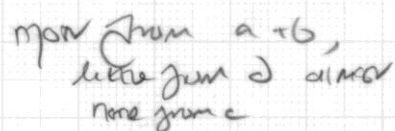 more from a + b,
little from d almost
none from c